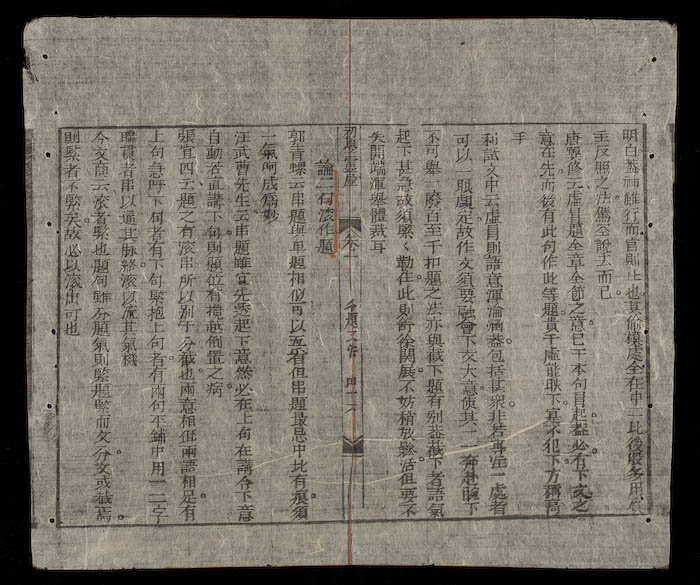 明白蓋神雖行而官則止也其偷樸處全在中二比後股多用
至反照之法儘至說去而已
唐襲修云虛目題全章全節之意已于本句目起蓋必有下文之
意在先而後有此何作此等題貴于虛能映下實不犯下方稱高
手
利試文中云虛目則語意渾淪涵蓋包括甚衆非若專治一處者
可以一眼覷定故作文須要融會下文大意使其一一奔赴腕下
不可舉一廢百至于扣題之法亦與截下題有別蓋截下者語氣
起下甚急故須緊緊勒住此則舒徐開展不妨稍放鬆活但要不
失開端渾舉體裁耳
初學靈
卷一
論二句滚作題
郭青螺云串題與單題相似可以互看但串題最忌中比有痕須
一氣呵成為妙
汪武曹先生云串題雖宜先透起下意然必在上句在講合下意
自動若直講下句則題位有攙越倒置之病
張宜四云題之有滚串所以別于分截也兩意相俱兩語相足有
上句急呼下句者有下句緊抱上句者有兩句平鋪中用一二字
聯貫者串以通其脉終滚以流其氣機
今文商云滚者緊也題句雖分題氣則緊題緊而文分文或截焉
則緊者不緊矣故必以滚出可也